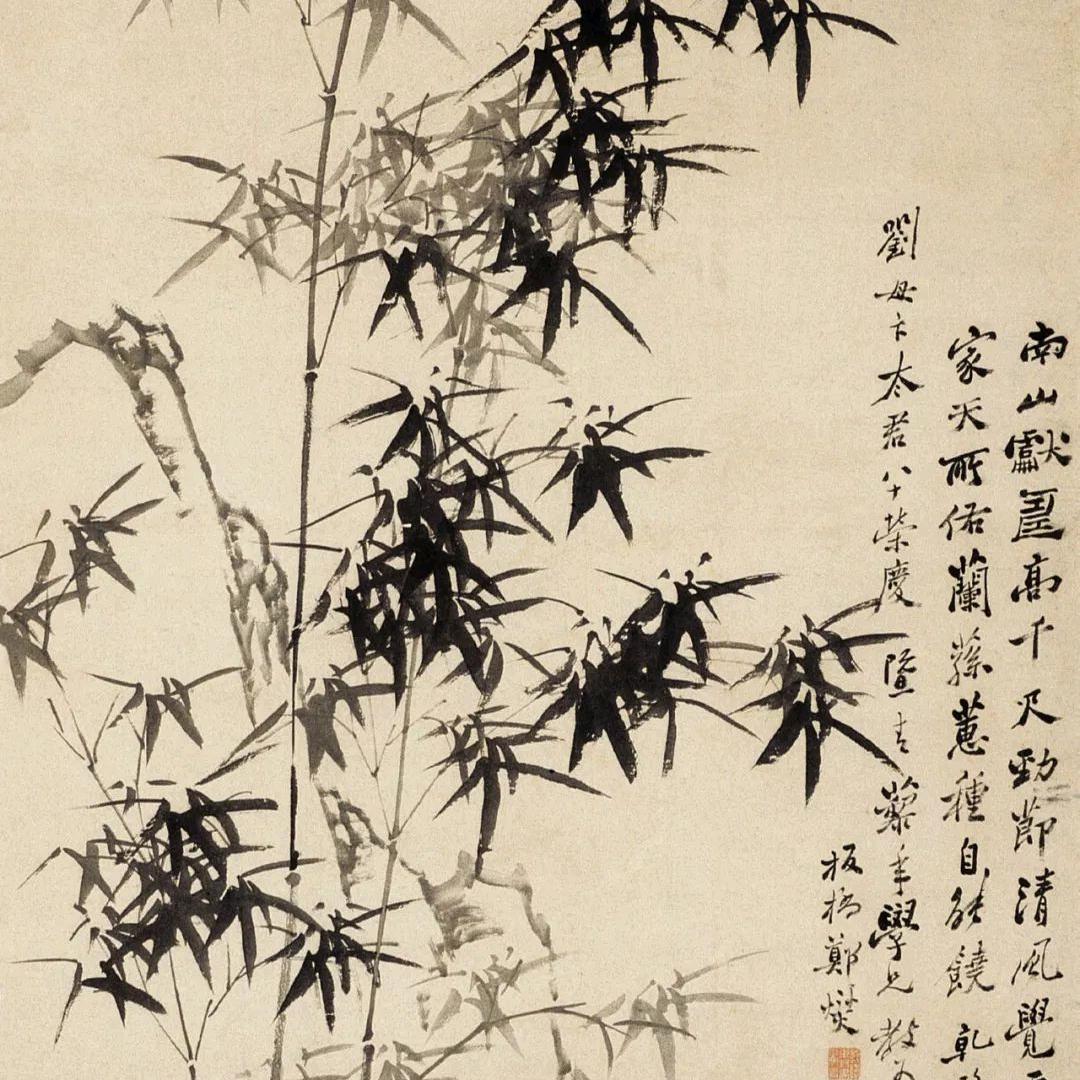 南山獻壽高千尺勁節清風覺
家天所佑蘭蓀蕙種自能饒乾
劉母卞太君八十榮慶暨青藜年學兄教
板橋鄭燮